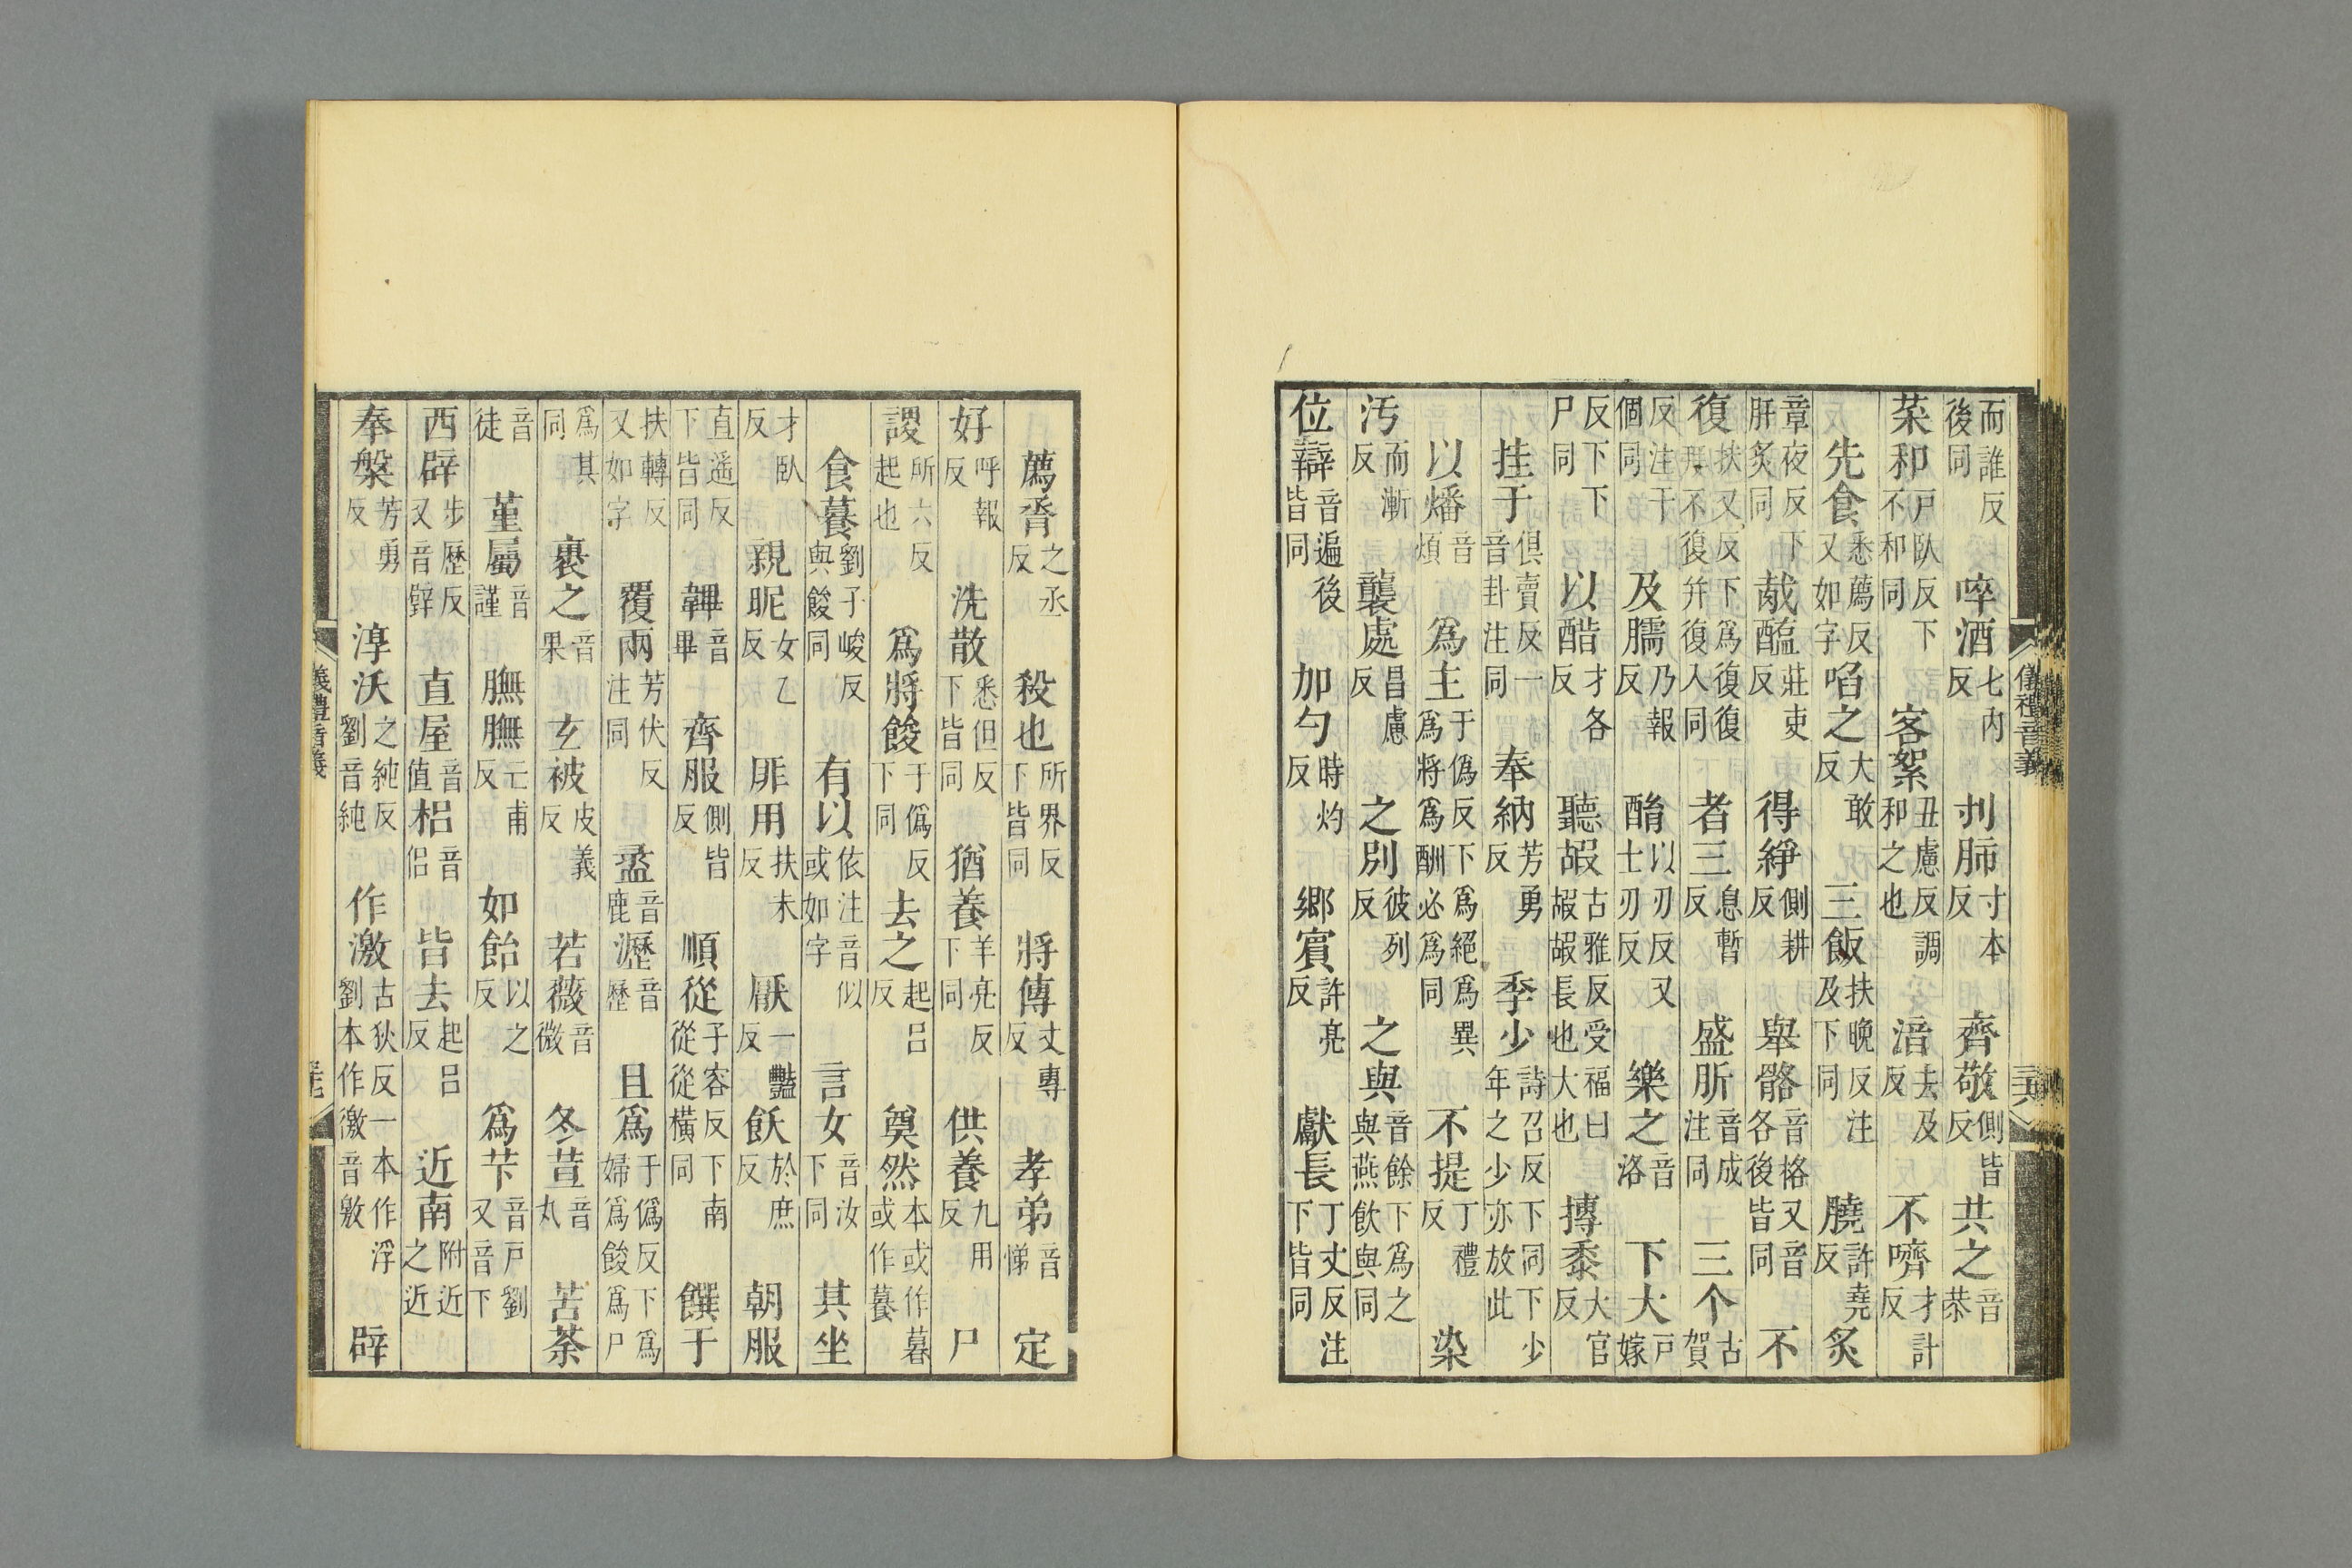 而誰反後同 啐酒七內反 刌肺寸本反 齊敬側皆反 共之音恭
菜和戶臥反下不和同 客絮丑慮反調和之也 湆去及反 不嚌才計反
先食悉薦反又如字 啗之大敢反 三飯扶晚反注及下同 膮許堯反 炙
章夜反下肝炙同 胾醢莊吏反 得綪側耕反 舉骼音格又音各後皆同 不
復扶又反下爲復復不復幷復入同 者三息暫反 盛肵音成注同 三个古賀
反注于個同 及臑乃報反 酳以刃反又士刃反 樂之音洛 下大戶嫁
反下下尸同 以醋才各反 聽嘏古雅反受福曰嘏嘏長也大也 摶黍大官反
挂于俱賣反一音卦注同 奉納芳勇反 季少詩召反下同下少年之少亦放此
以燔音煩 爲主于僞反下爲絕爲異爲將爲酬必爲同 不提丁禮反 染
汚而漸反 襲處昌慮反 之別彼列反 之與音餘下爲之與燕飲與同
位辯音遍後皆同 加勺時灼反 鄉賓許亮反 獻長丁丈反注下皆同
儀禮音義
薦脀之丞反 殺也所界反下皆同 將傳丈專反 孝弟音悌 定
好呼報反 洗散悉但反下皆同 猶養羊亮反下同 供養九用反 尸
謖所六反起也 爲將餕于僞反下同 去之起呂反 奠然本或作暮或作䬸
食䬸劉子峻反與餕同 有以依注音似或如字 言女音汝下同 其坐
才臥反 親昵女乙反 厞用扶未反 厭一豔反 飫於庶反 朝服
直遥反下皆同 韠音畢 齊服側皆反 順從子容反下南從從橫同 饌于
扶轉反又如字 覆兩芳伏反注同 盝音鹿瀝音歷 且爲于僞反下爲婦爲餕爲尸
爲其同 裹之音果 玄被皮義反 若薇音微 冬荁音丸 苦荼
音徒 菫屬音謹 膴膴亡甫反 如飴以之反 爲芐音戶劉又音下
西辟步歷反又音辟 直屋音值梠音侶 皆去起呂反 近南附近之近
奉槃芳勇反 淳沃之純反劉音純 作激古狄反一本作浮劉本作徼音敫 辟